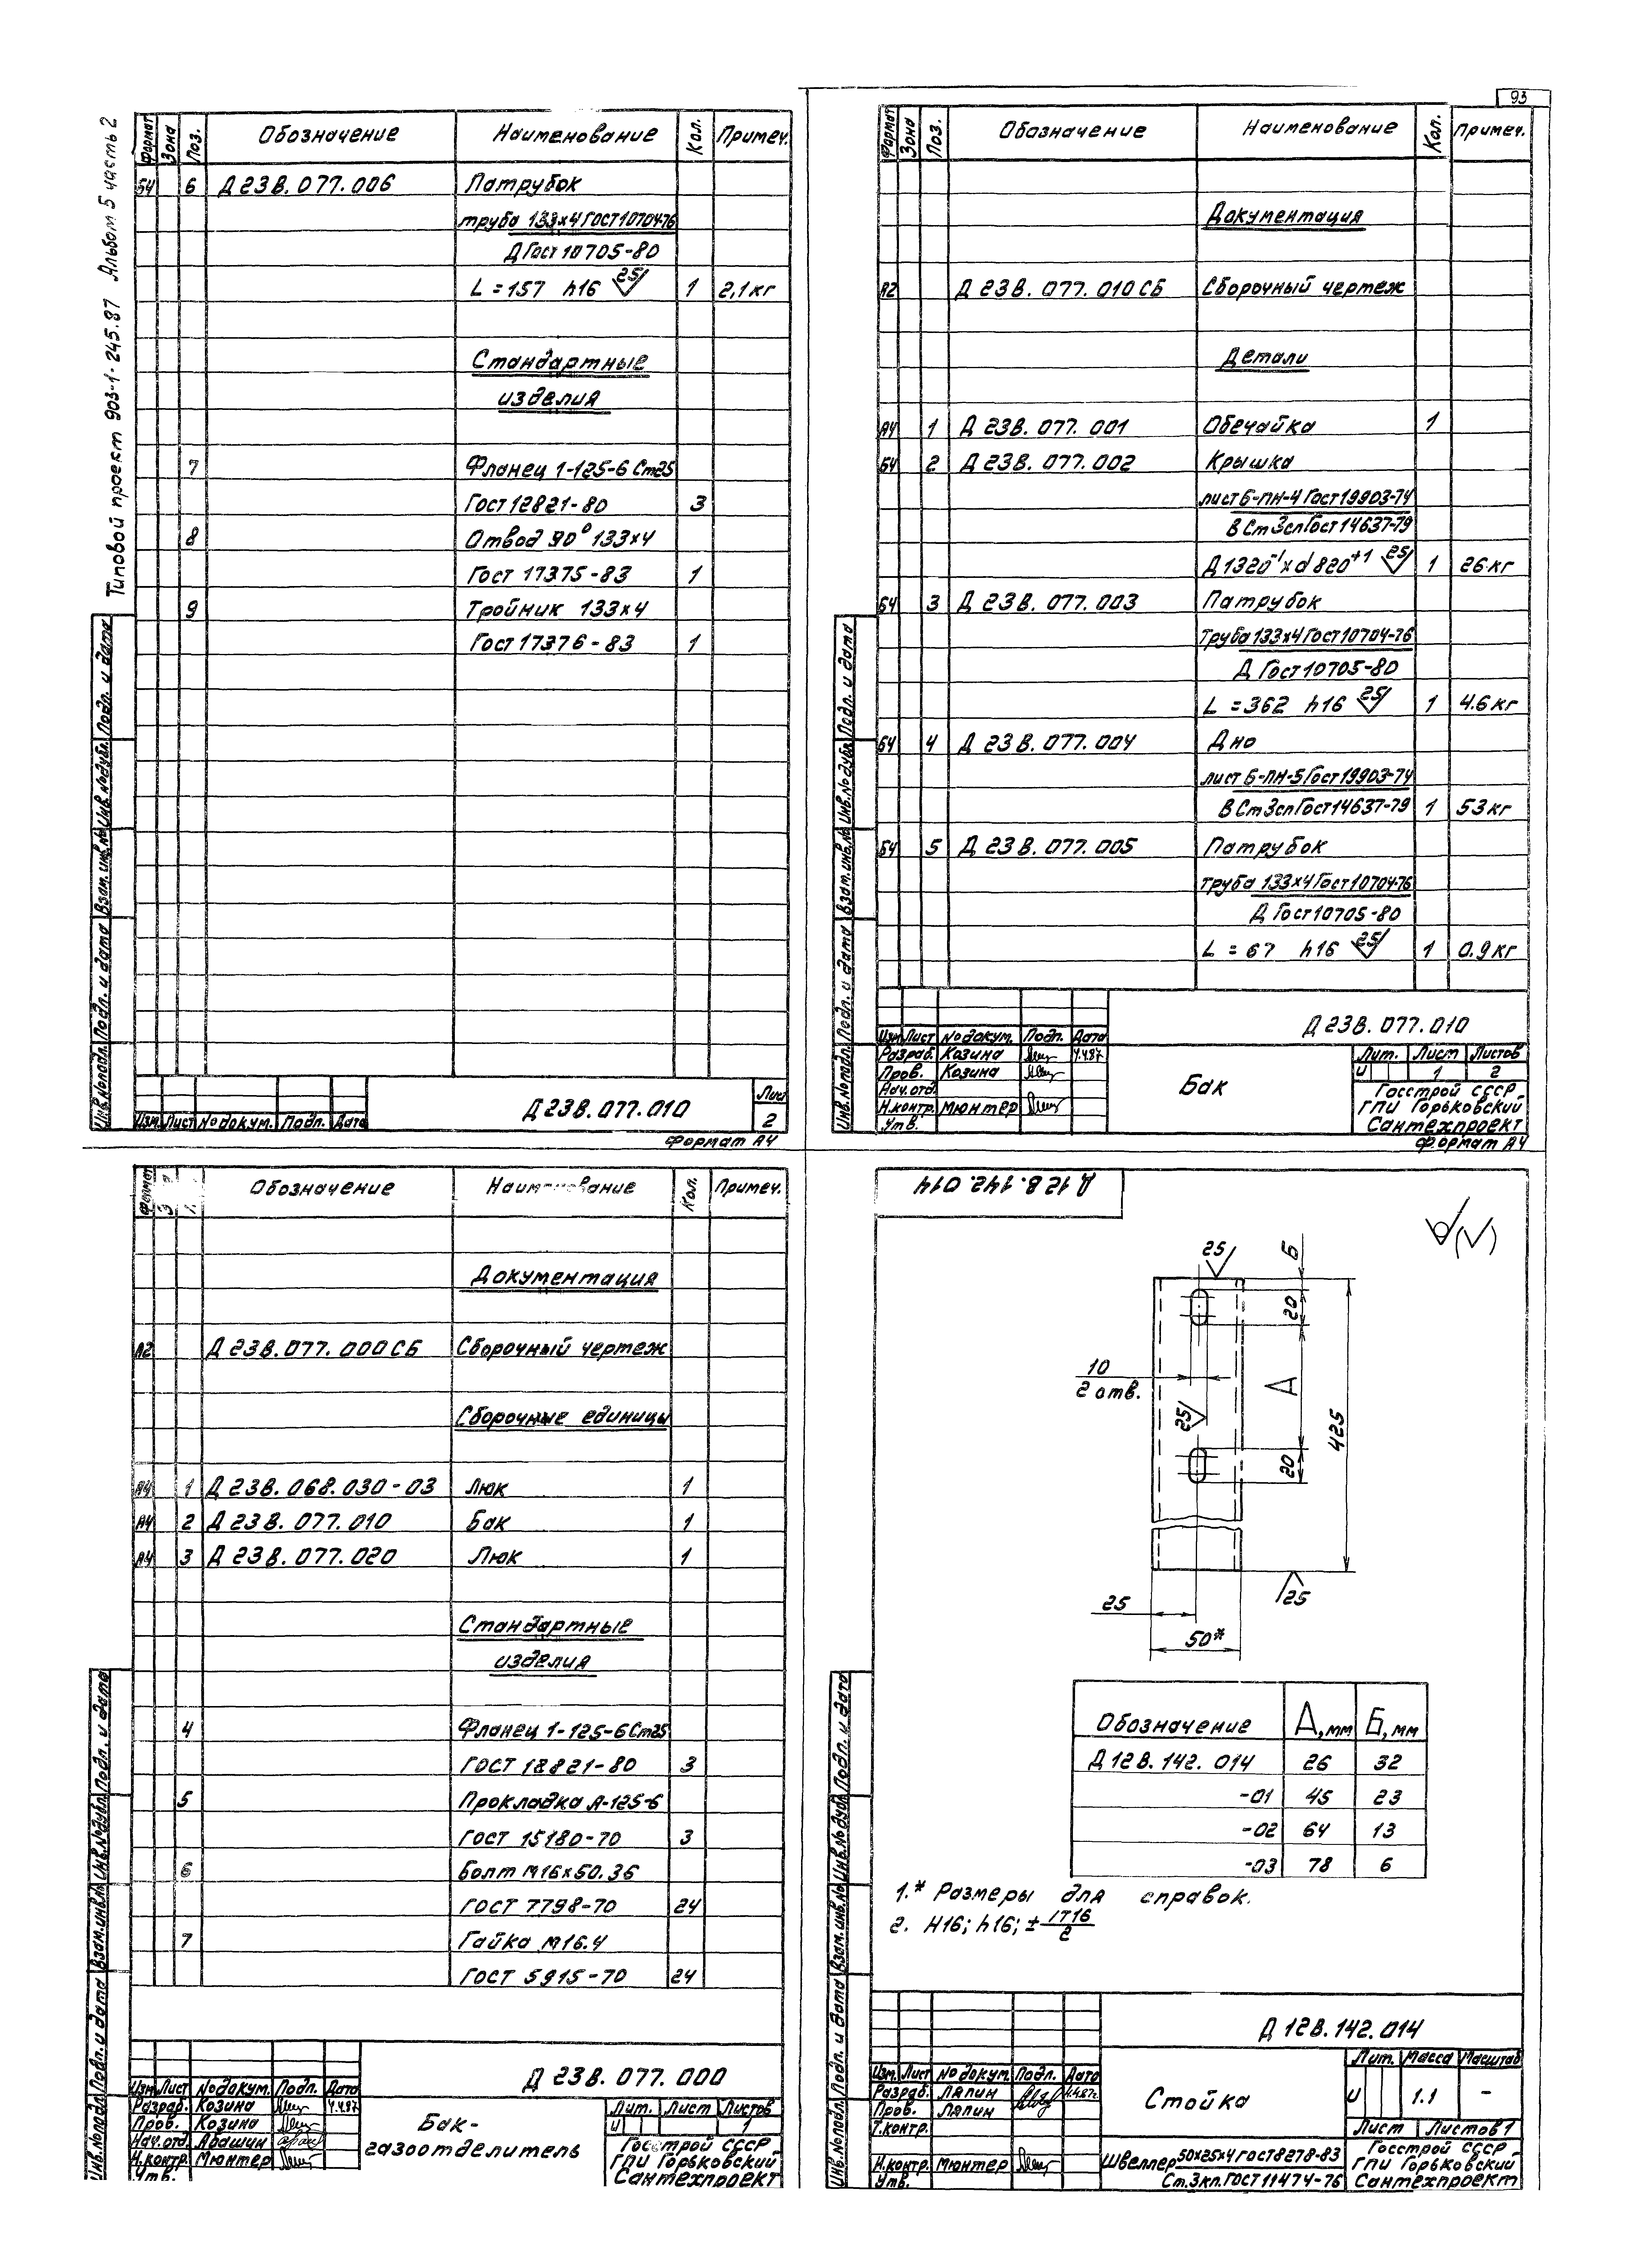 93
Типовой проект 903-1-245.87 Альбом 5 часть 2
Формат Зона Поз. Обозначение Наименование Кол. Примеч.
Б4 6 Д23В.077.006 Патрубок
труба 133х4 ГОСТ10704-76
Д Гост 10705-80
L=157 h16 25 1 2,1кг
Стандартные
изделия
7 Фланец 1-125-6 Ст25
Гост 12821-80 3
8 Отвод 90° 133х4
Гост 17375-83 1
9 Тройник 133х4
Гост 17376-83 1
Инв.№подл. Подл. и дата Взам.инв.№ Инв.№дубл. Подл. и дата
Изм. Лист №докум. Подп. Дата
Д23В.077.010
Лист
2
Формат А4
Формат Зона Поз. Обозначение Наименование Кол. Примеч.
Документация
А2 Д23В.077.010СБ Сборочный чертеж
Детали
А4 1 Д23В.077.001 Обечайка 1
Б4 2 Д23В.077.002 Крышка
лист Б-ПН-4 Гост19903-74
ВСт3спГост14637-79
Д1320-1 х d820+1 25 1 26кг
Б4 3 Д23В.077.003 Патрубок
Труба 133х4 Гост10704-76
Д Гост10705-80
L=362 h16 25 1 4.6кг
Б4 4 Д23В.077.004 Дно
лист Б-ПН-5 Гост19903-74
ВСт3спГост14637-79 1 53кг
Б4 5 Д23В.077.005 Патрубок
труба 133х4 Гост10704-76
Д Гост10705-80
L=67 h16 25 1 0.9кг
Инв.№подл. Подл. и дата Взам.инв.№ Инв.№дубл. Подл. и дата
Д23В.077.010
Изм. Лист №докум. Подп. Дата
Разраб. Козина 4.4.87
Пров. Козина
Нач.отд.
Н.контр. Мюнтер
Утв.
Бак
Лит. Лист Листов
и 1 2
Госстрой СССР
ГПИ Горьковский
Сантехпроект
Формат А4
Формат Обозначение Наименование Кол. Примеч.
Документация
А2 Д23В.077.000СБ Сборочный чертеж
Сборочные единицы
А4 1 Д23В.068.030-03 Люк 1
А4 2 Д23В.077.010 Бак 1
А4 3 Д23В.077.020 Люк 1
Стандартные
изделия
4 Фланец 1-125-6 Ст25
ГОСТ 12821-80 3
5 Прокладка А-125-6
ГОСТ 15180-70 3
6 Болт М16х50.36
ГОСТ 7798-70 24
7 Гайка М16.4
ГОСТ 5915-70 24
Инв.№подл. Подл. и дата Взам.инв.№ Инв.№дубл. Подл. и дата
Д23В.077.000
Изм. Лист №докум. Подп. Дата
Разраб. Козина 4.4.87
Пров. Козина
Нач.отд. Абашин
Н.контр. Мюнтер
Утв.
Бак-
газоотделитель
Лит. Лист Листов
и 1
Госстрой СССР
ГПИ Горьковский
Сантехпроект
Д12В.142.014
25
Б
20
10
2 отв.
А
25
425
20
25
25
50*
Обозначение А,мм Б,мм
Д12В.142.014 26 32
-01 45 23
-02 64 13
-03 78 6
1.* Размеры для справок.
2. Н16; h16; ± IT16/2
Инв.№подл. Подл. и дата Взам.инв.№ Инв.№дубл. Подл. и дата
Д12В.142.014
Изм. Лист №докум. Подп. Дата
Разраб. Ляпин 4.4.87г.
Пров. Ляпин
Т.контр.
Н.контр. Мюнтер
Утв.
Стойка
Лит. Масса Масштаб
и 1.1 -
Лист Листов 1
Швеллер 50х25х4 ГОСТ8278-83
Ст.3кп.ГОСТ11474-76
Госстрой СССР
ГПИ Горьковский
Сантехпроект